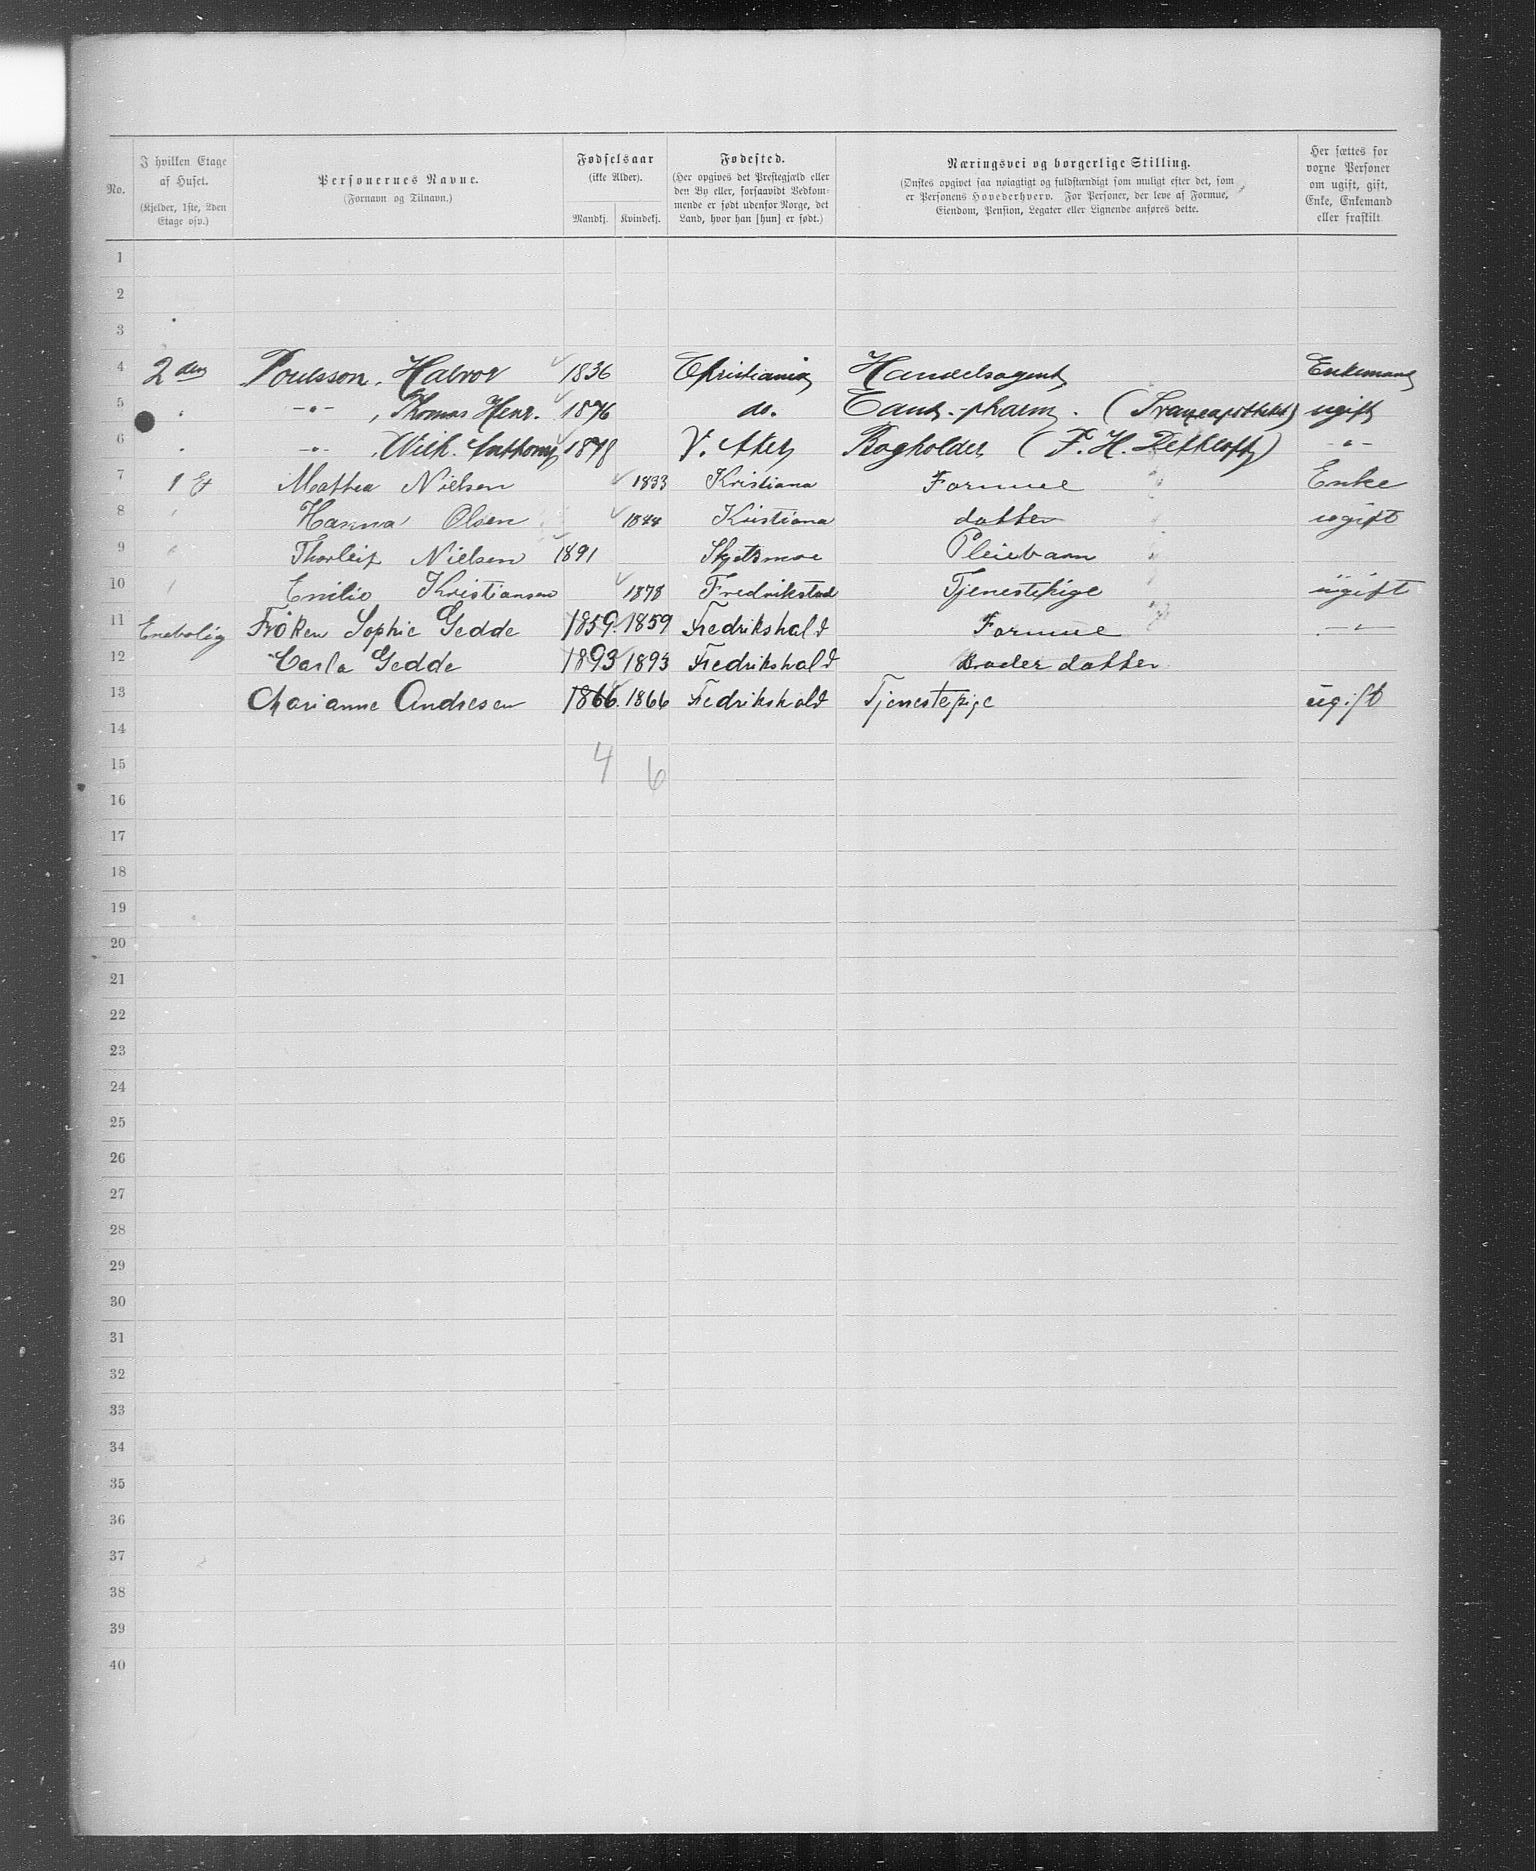 No. | I hvilken Etage af Huset. (Kjelder, 1ste, 2den Etage osv.) | Personernes Navne. (Fornavn og Tilnavn.) | Fødselsaar (ikke Alder). Mandkj. Kvindekj. | Fødested. (Her opgives det Prestegjæld eller den By eller, forsaavidt Vedkommende er født udenfor Norge, det Land, hvor han [hun] er født.) | Næringsvei og borgerlige Stilling. (Ønskes opgivet saa nøiagtigt og fuldstændigt som muligt efter det, som er Personens Hovederhverv. For Personer, der leve af Formue, Eiendom, Pension, Legater eller Lignende anføres dette. | Her sættes for voxne Personer om ugift, gift, Enke, Enkemand eller fraskilt
1
2
3
4 2den Poulsson, Halvor 1836 Christiania Handelsagent Enkemand
5 " -"- , Thomas Henr. 1876 do. Cand. pharm. (Svaneapotheket) ugift
6 " -"- , Wilh. Anthony 1878 V. Aker Bogholder (F. H. Dethloff) -"-
7 1 Et Mathea Nielsen 1833 Kristiana Formue Enke
8 " Hanna Olsen 1844 Kristiana datter ugift
9 " Thorleif Nielsen 1891 Skjedsmoe Pleiebarn
10 " Emilie Kristiansen 1878 Fredrikstad Tjenestepige ugift
11 Enebolig Fröken Sophie Gedde 1859. 1859 Fredrikshald Formue -"-
12 Carla Gedde 1893 1893 Fredrikshald Broder datter
13 Marianne Andresen 1866. 1866 Fredrikshald Tjenestepige ugift
14
15 4 6
16
17
18
19
20
21
22
23
24
25
26
27
28
29
30
31
32
33
34
35
36
37
38
39
40